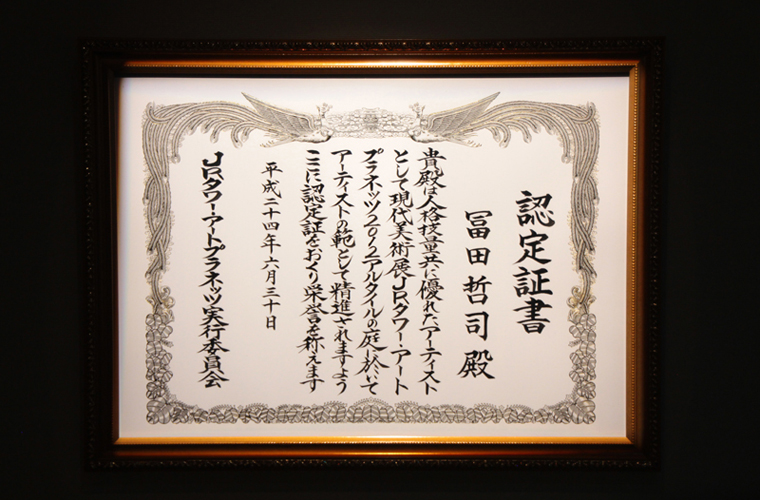 認定証書
冨田哲司殿
貴殿は人格技量共に優れたアーティスト
として現代美術展JRタワー・アート
プラネッツ2012アルタイルの庭に於いて
アーティストの範として精進されますよう
ここに認定証をおくり栄誉を称えます
平成二十四年六月三十日
JRタワー・アートプラネッツ実行委員会